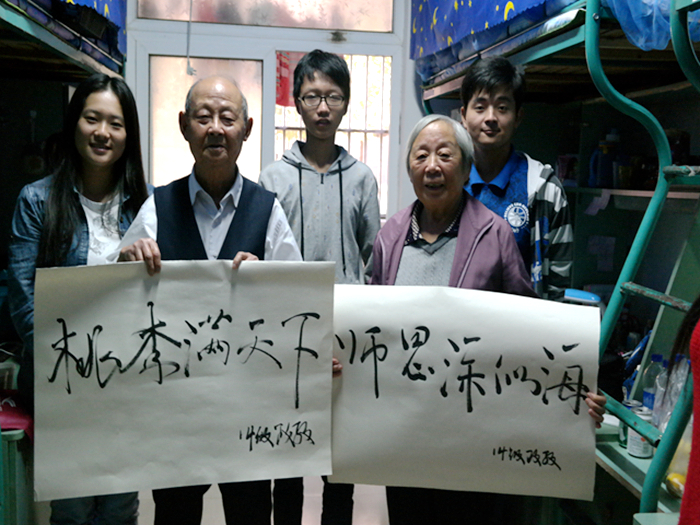 桃李满天下
14级政教
师恩深似海
14级政教